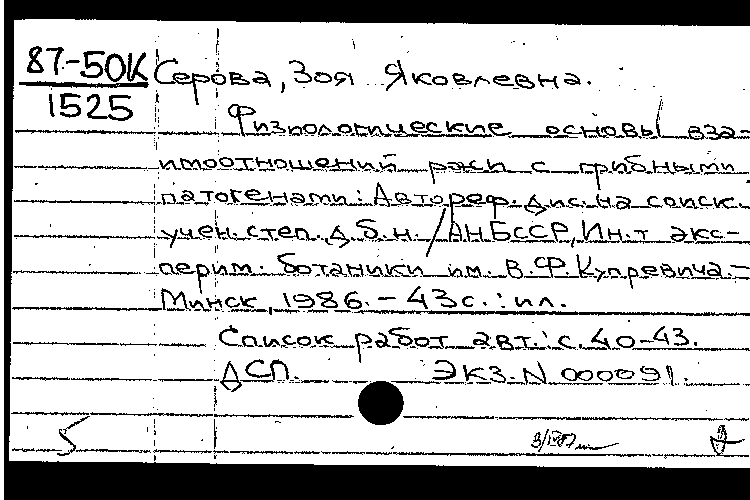 87-50К
1525
Серова, Зоя Яковлевна.
Физиологические основы вза-
имоотношений ржи с грибными
патогенами: Автореф. дис. на соиск.
учен. степ. д.б.н. / АН БССР, Ин.т экс-
перим. ботаники им. В.Ф. Купревича. -
Минск, 1986. - 43 с. : ил.
Список работ авт.: с. 40-43.
ДСП. Экз. N 000091.